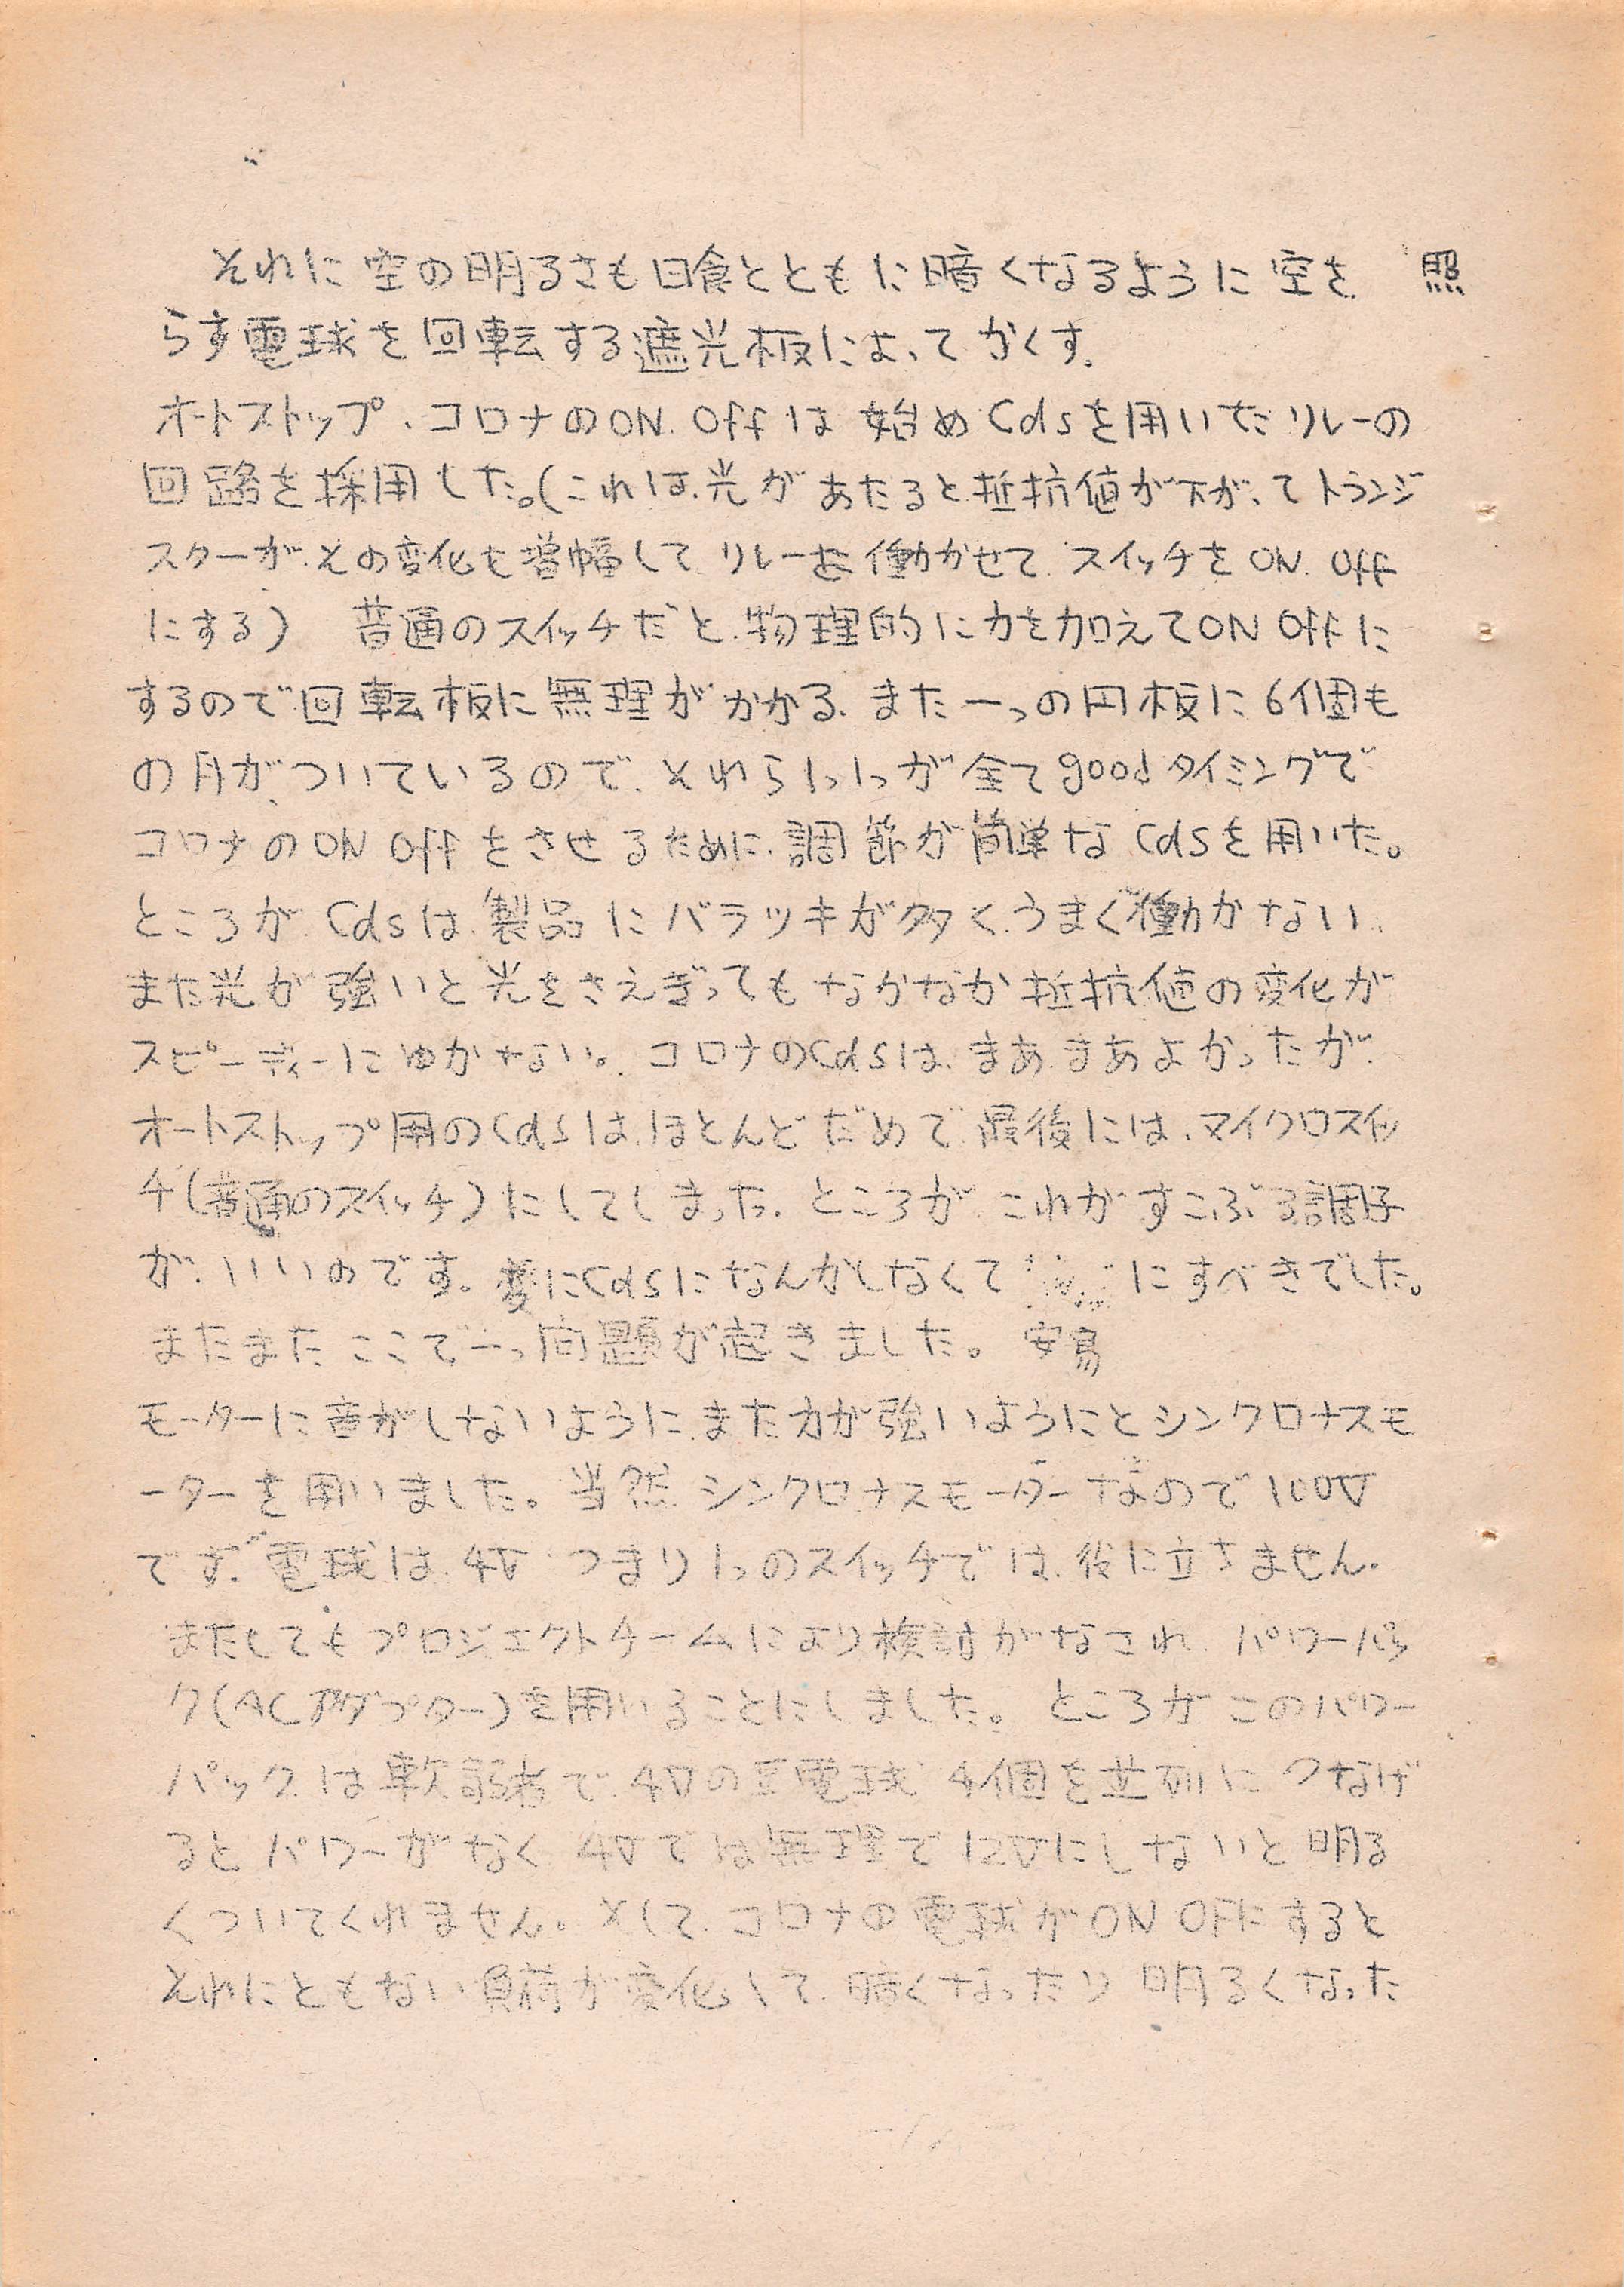 それに空の明るさも日食とともに暗くなるように空を 照
らす電球を回転する遮光板によってかくす。
オートストップ、コロナのON.Offは始めCdsを用いたリレーの
回路を採用した。(これは、光があたると抵抗値が下がってトランジ
スターが、その変化を増幅してリレーを働かせてスイッチをON.Off
にする) 普通のスイッチだと、物理的に力を加えてON Offに
するので回転板に無理がかかる、また一つの円板に6個も
の月がついているので、それら1つ1つが全てgoodタイミングで
コロナのON Offをさせるために、調節が簡単なCdsを用いた。
ところがCdsは、製品にバラツキが多く、うまく働かない、
また光が強いと光をさえぎってもなかなか抵抗値の変化が
スピーディーにゆかない。コロナのCdsは、まあまあよかったが、
オートストップ用のCdsは、ほとんどだめで最後には、マイクロスイッ
チ(普通のスイッチ)にしてしまった。ところが、これがすこぶる調子
が、いいのです。変にCdsになんかしなくて にすべきでした。
またまたここで一つ問題が起きました。 安易
モーターに音がしないように、また力が強いようにとシンクロナスモ
ーターを用いました。当然シンクロナスモーターなので100V
です。電球は、4V つまり1つのスイッチでは、役に立ちません。
またしてもプロジェクトチームにより検討がなされ、パワーパッ
ク(ACアダプター)を用いることにしました。ところがこのパワー
パックは軟弱者で4Vの豆電球4個を並列につなげ
るとパワーがなく4Vでは無理で12Vにしないと明る
くついてくれません。そして、コロナの電球がON OFFすると
それにともない負荷が変化して、暗くなったり明るくなった